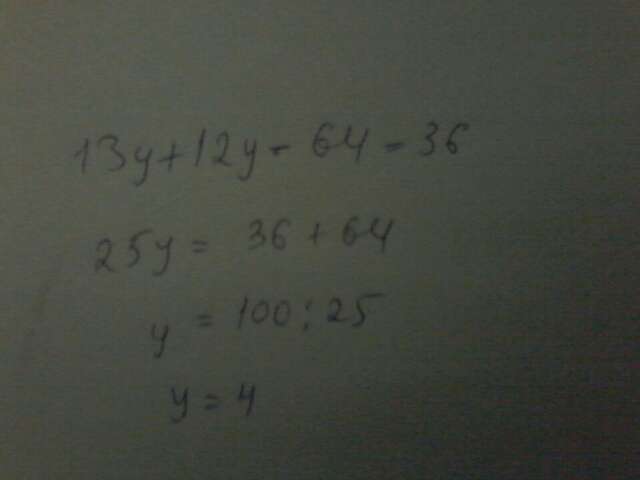 13y+12y-64=36
25y = 36+64
y = 100:25
y = 4